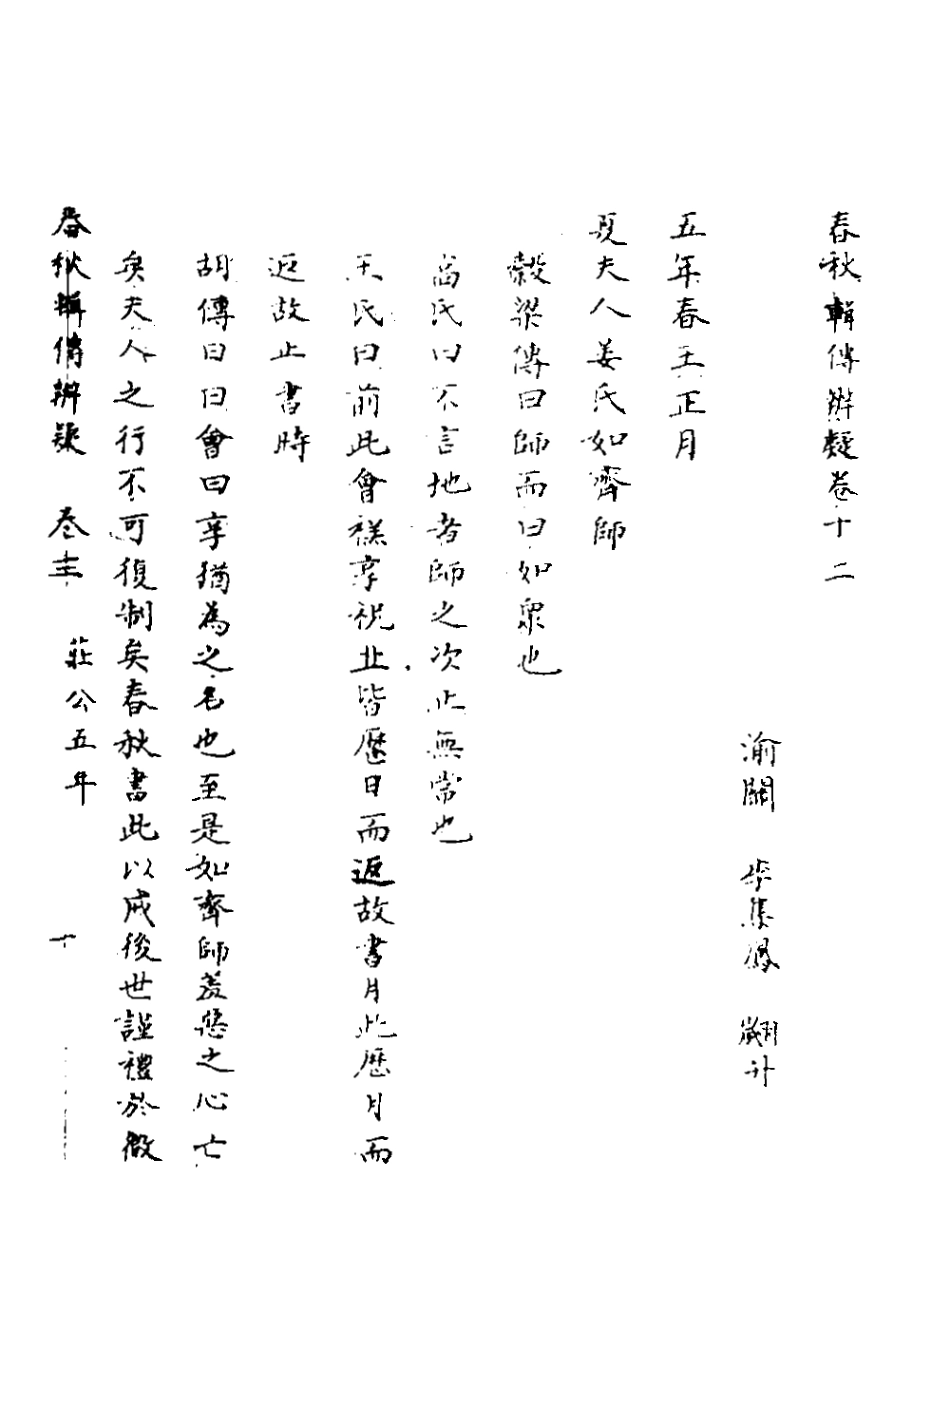 春秋輯傳辨疑卷十二
渝關 李集鳳 翽升
五年春王正月
夏夫人姜氏如齊師
穀梁傳曰師而曰如眾也
高氏曰不言地者師之次止無常也
王氏曰前此會禚享祝丘皆歷日而返故書月此歷月而
返故止書時
胡傳曰曰會曰享猶為之名也至是如齊師羞惡之心亡
矣夫人之行不可復制矣春秋書此以戒後世謹禮於微
春秋輯傳辨疑 卷十二 莊公五年 一